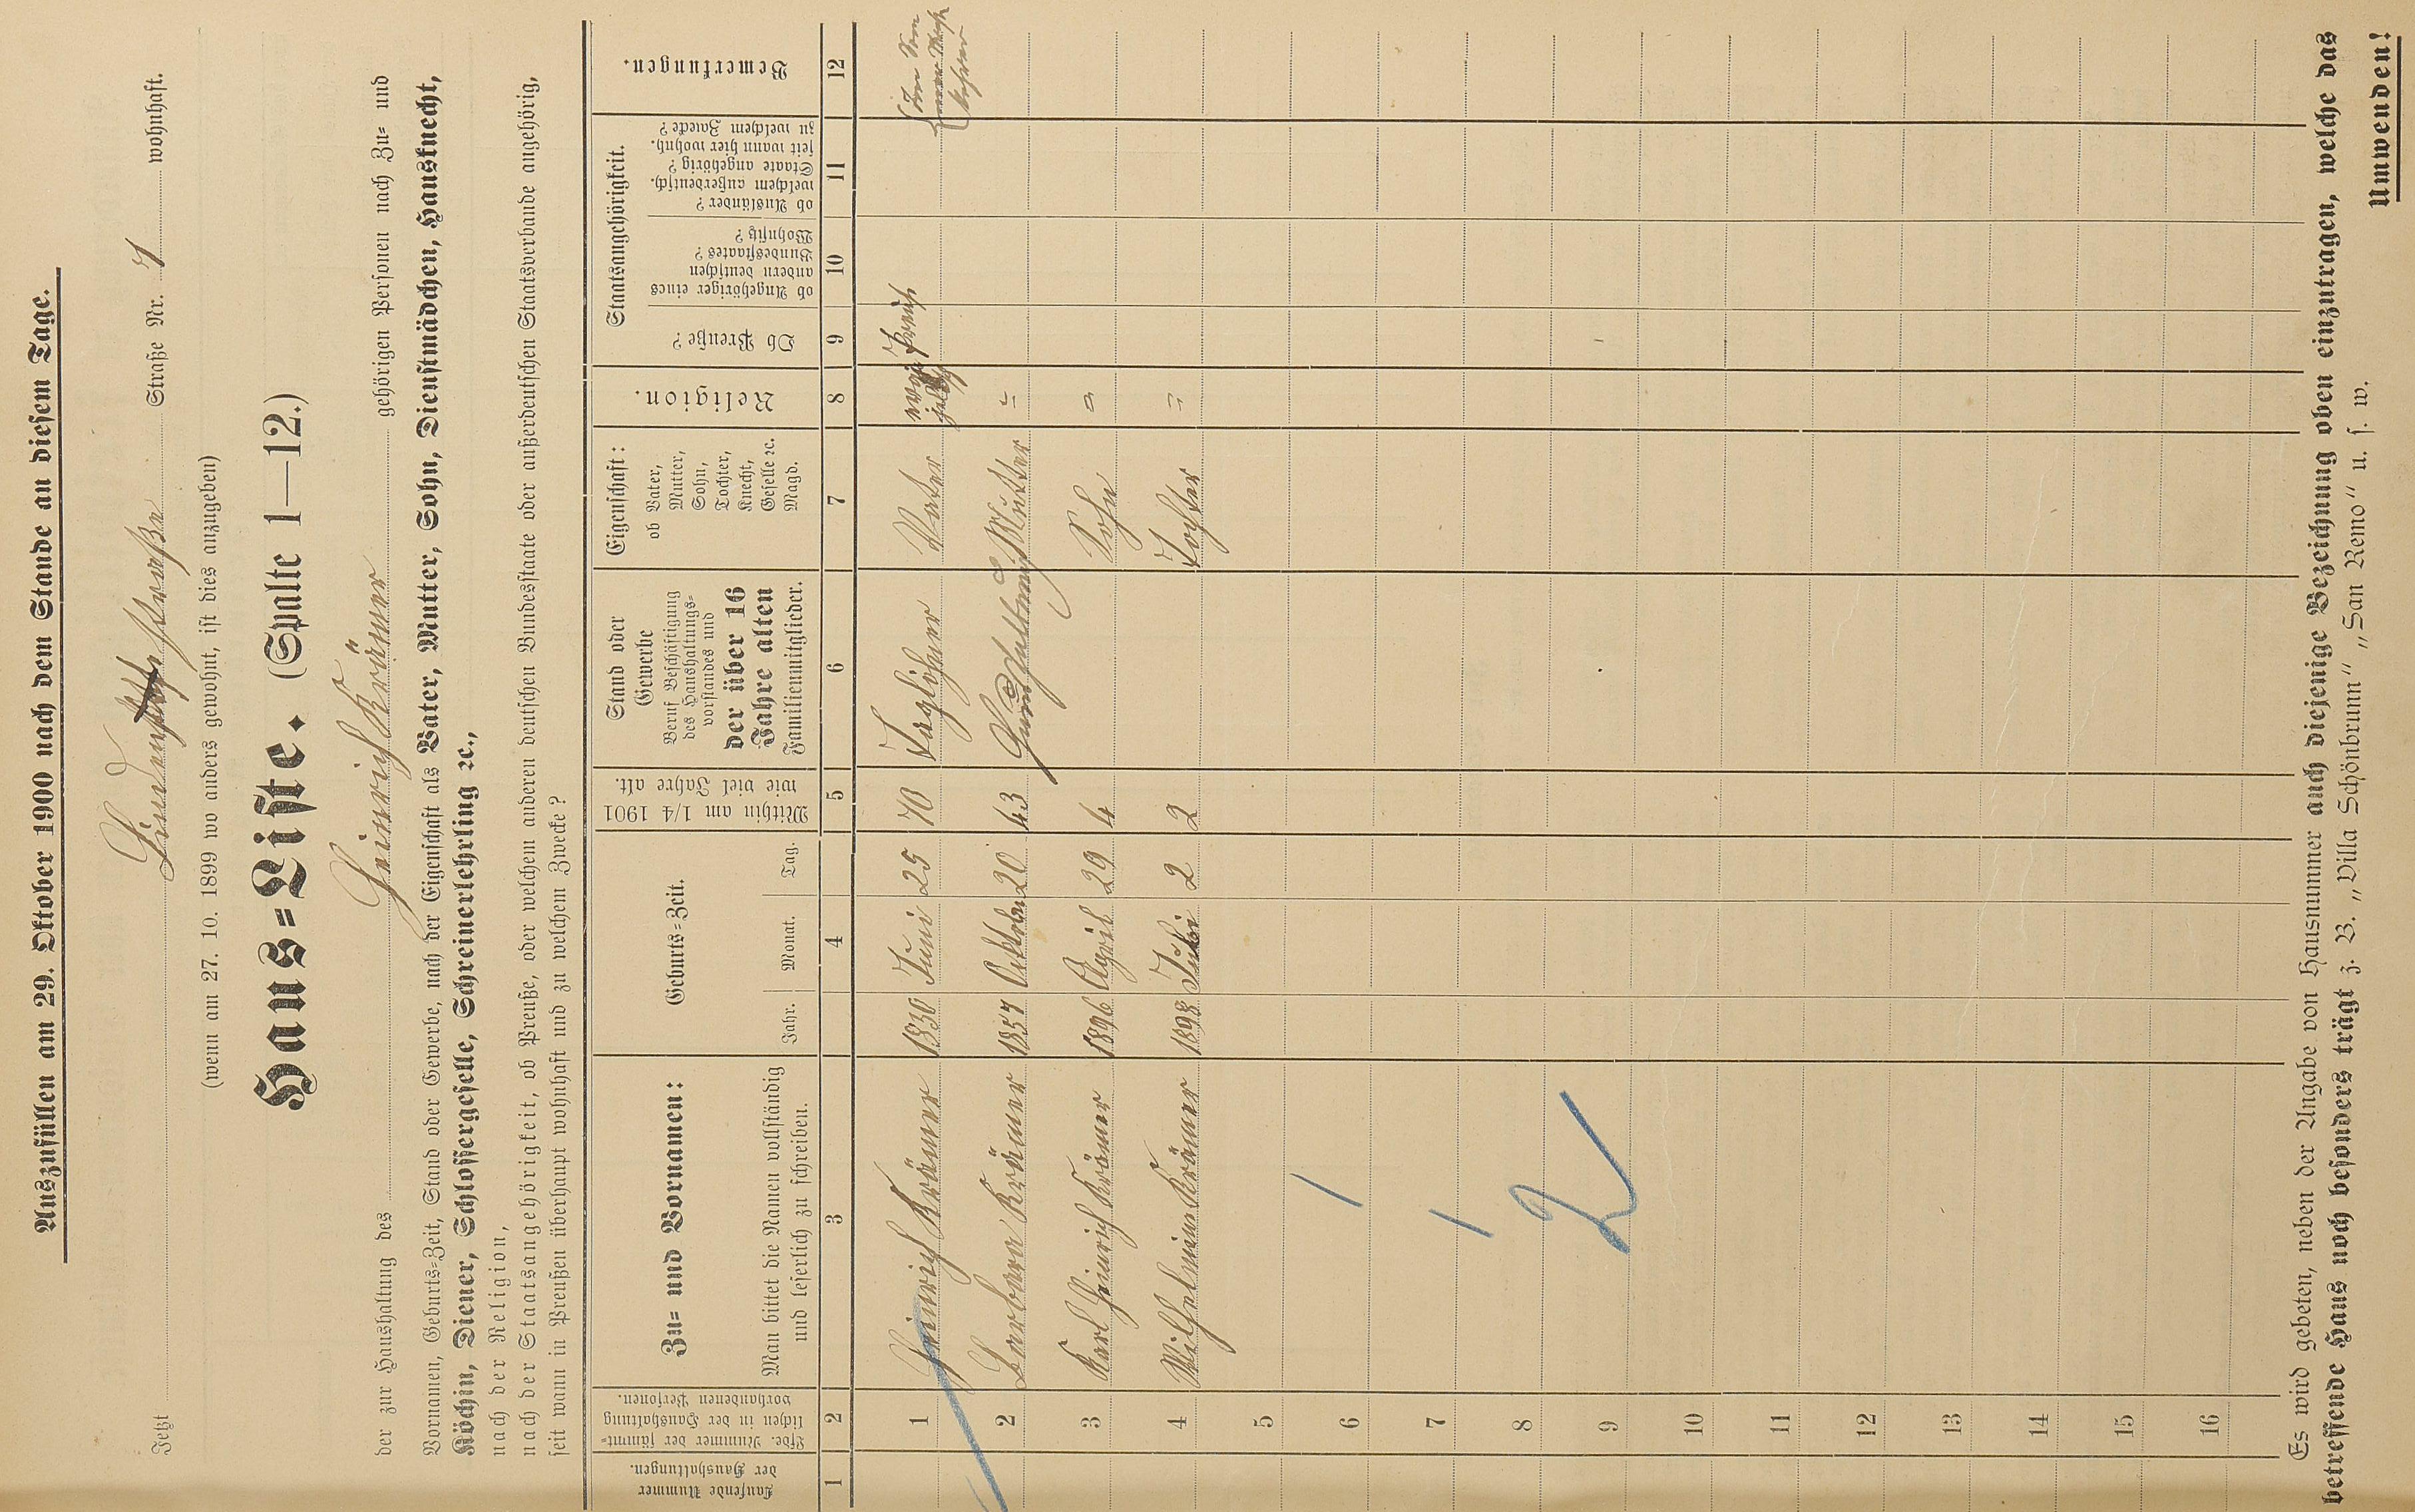 Auszufüllen am 29. Oktober 1900 nach dem Stande an diesem Tage.
Jetzt Straße Nr. 7 wohnhaft.
(wenn am 27. 10. 1899 wo anders gewohnt, ist dies anzugeben)
Haus=Liste. (Spalte 1—12.)
der zur Haushaltung des Heinrich Krämer gehörigen Personen nach Zu= und
Vornamen, Geburts=Zeit, Stand oder Gewerbe, nach der Eigenschaft als Vater, Mutter, Sohn, Dienstmädchen, Hausknecht,
Köchin, Diener, Schlossergeselle, Schreinerlehrling ꝛc.,
nach der Religion,
nach der Staatsangehörigkeit, ob Preuße, oder welchem anderen deutschen Bundesstaate oder außerdeutschen Staatsverbande angehörig,
seit wann in Preußen überhaupt wohnhaft und zu welchem Zwecke?
Laufende Nummer
der Haushaltungen.
Lfde. Nummer der sämmt=
lichen in der Haushaltung
vorhandenen Personen.
Zu= und Vornamen:
Man bittet die Namen vollständig
und leserlich zu schreiben.
Geburts=Zeit.
Jahr. Monat. Tag.
Mithin am 1/4 1901
wie viel Jahre alt.
Stand oder
Gewerbe
Beruf Beschäftigung
des Haushaltungs=
vorstandes und
der über 16
Jahre alten
Familienmitglieder.
Eigenschaft:
ob Vater,
Mutter,
Sohn,
Tochter,
Knecht,
Geselle ꝛc.
Magd.
Religion.
Staatsangehörigkeit.
Ob Preuße?
ob Angehöriger eines
andern deutschen
Bundesstaates?
Wohnsitz?
ob Ausländer?
welchem außerdeutsch.
Staate angehörig?
seit wann hier wohnh.
zu welchem Zwecke?
Bemerkungen.
1 2 3 4 5 6 7 8 9 10 11 12
1 Heinrich Krämer 1830 Juni 25 70 Taglöhner Vater Preuß
2 Barbara Krämer 1857 Oktober 20 43 Haushaltung Mutter "
3 Karl Heinrich Krämer 1896 April 29 4 Sohn "
4 Wilhelmine Krämer 1898 Juli 2 2 Tochter "
5
6
7
8
9
10
11
12
13
14
15
16
2
Es wird gebeten, neben der Angabe von Hausnummer auch diejenige Bezeichnung oben einzutragen, welche das
betreffende Haus noch besonders trägt z. B. „Villa Schönbrunn" „San Remo" u. s. w.
Umwenden!